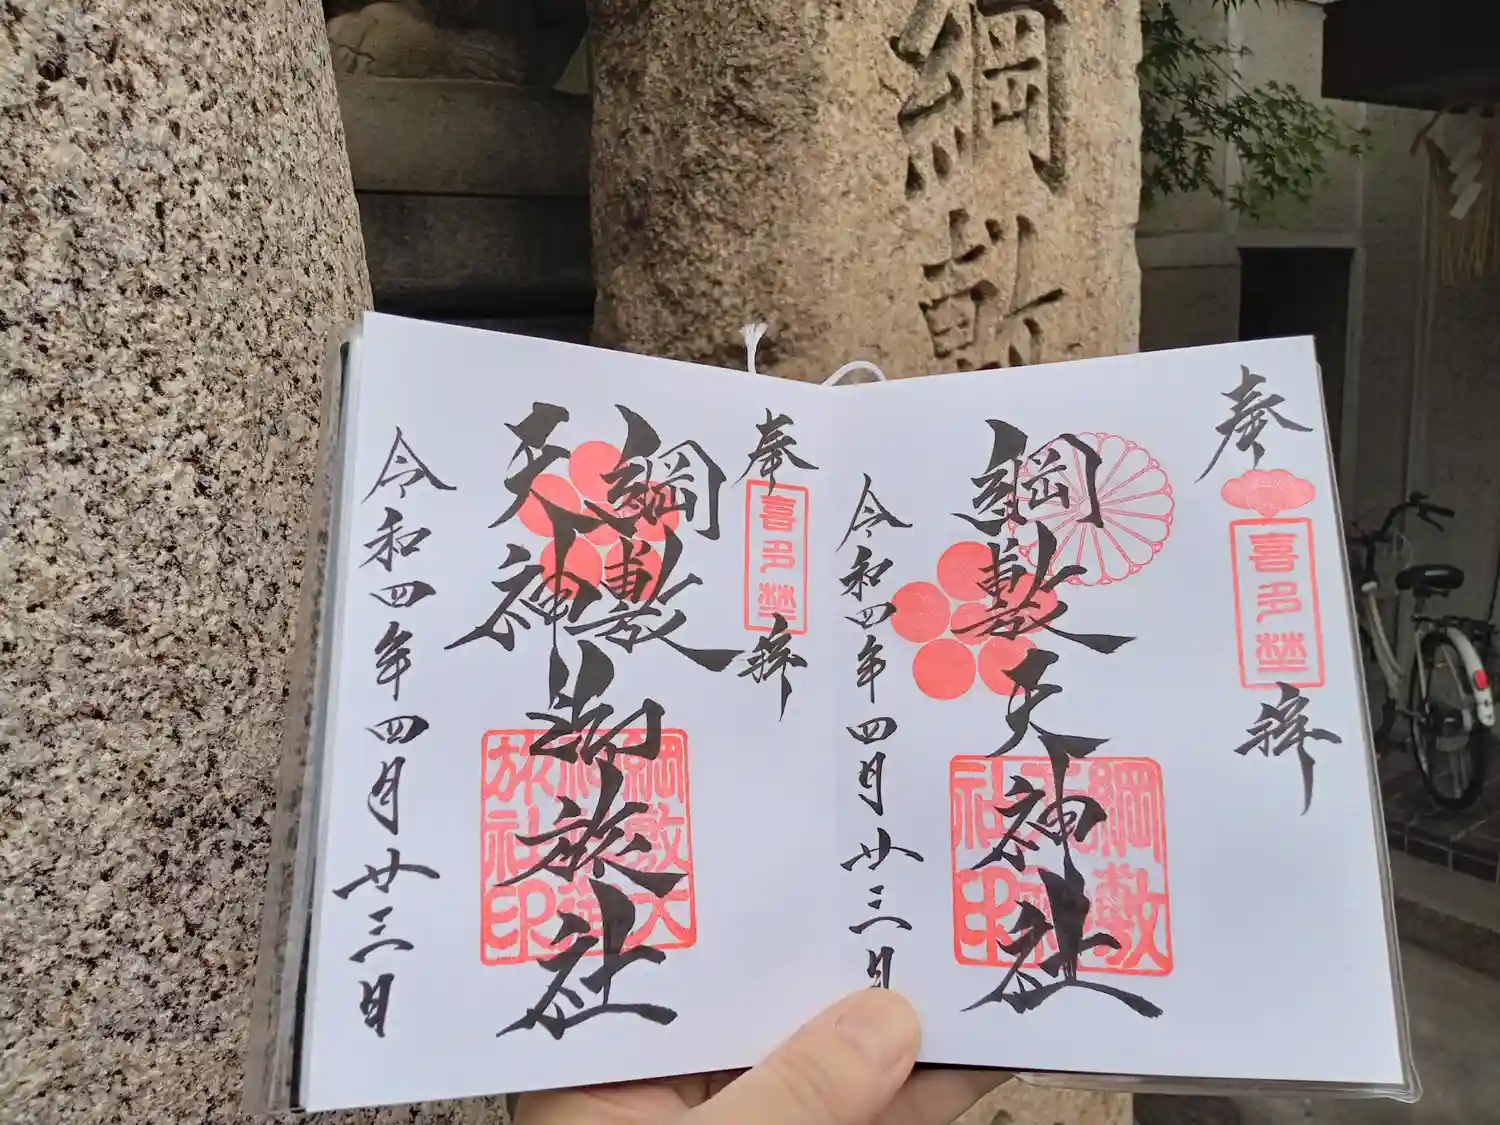 綱敷
奉拝
喜多埜
綱敷天神社
綱敷
天神
社印
令和四年四月廿三日
奉拝
喜多埜
綱敷
天神御旅社
綱敷天
神社御
旅社印
令和四年四月廿三日